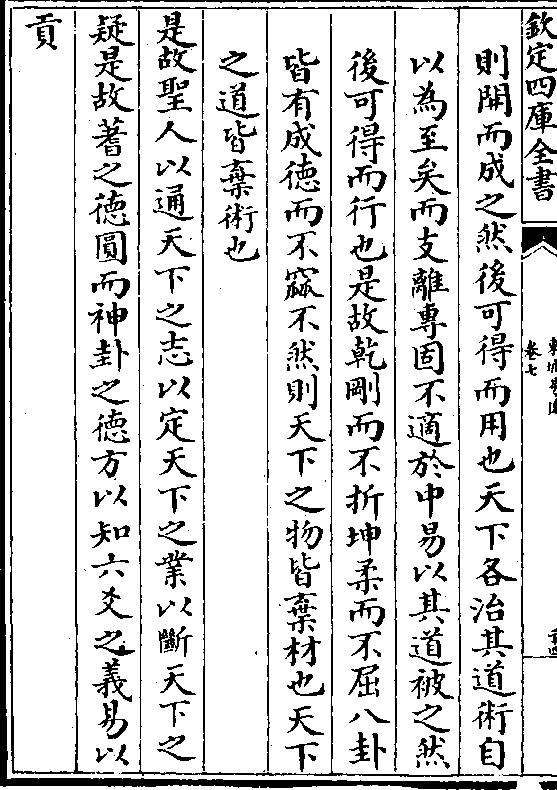 欽定四庫全書
卷七
則開而成之然後可得而用也天下各治其道術自
以為至矣而支離專固不適於中易以其道被之然
後可得而行也是故乾剛而不折坤柔而不屈八卦
皆有成徳而不窳不然則天下之物皆棄材也天下
之道皆棄術也
是故聖人以通天下之志以定天下之業以斷天下之
疑是故蓍之徳圓而神卦之徳方以知六爻之義易以
貢